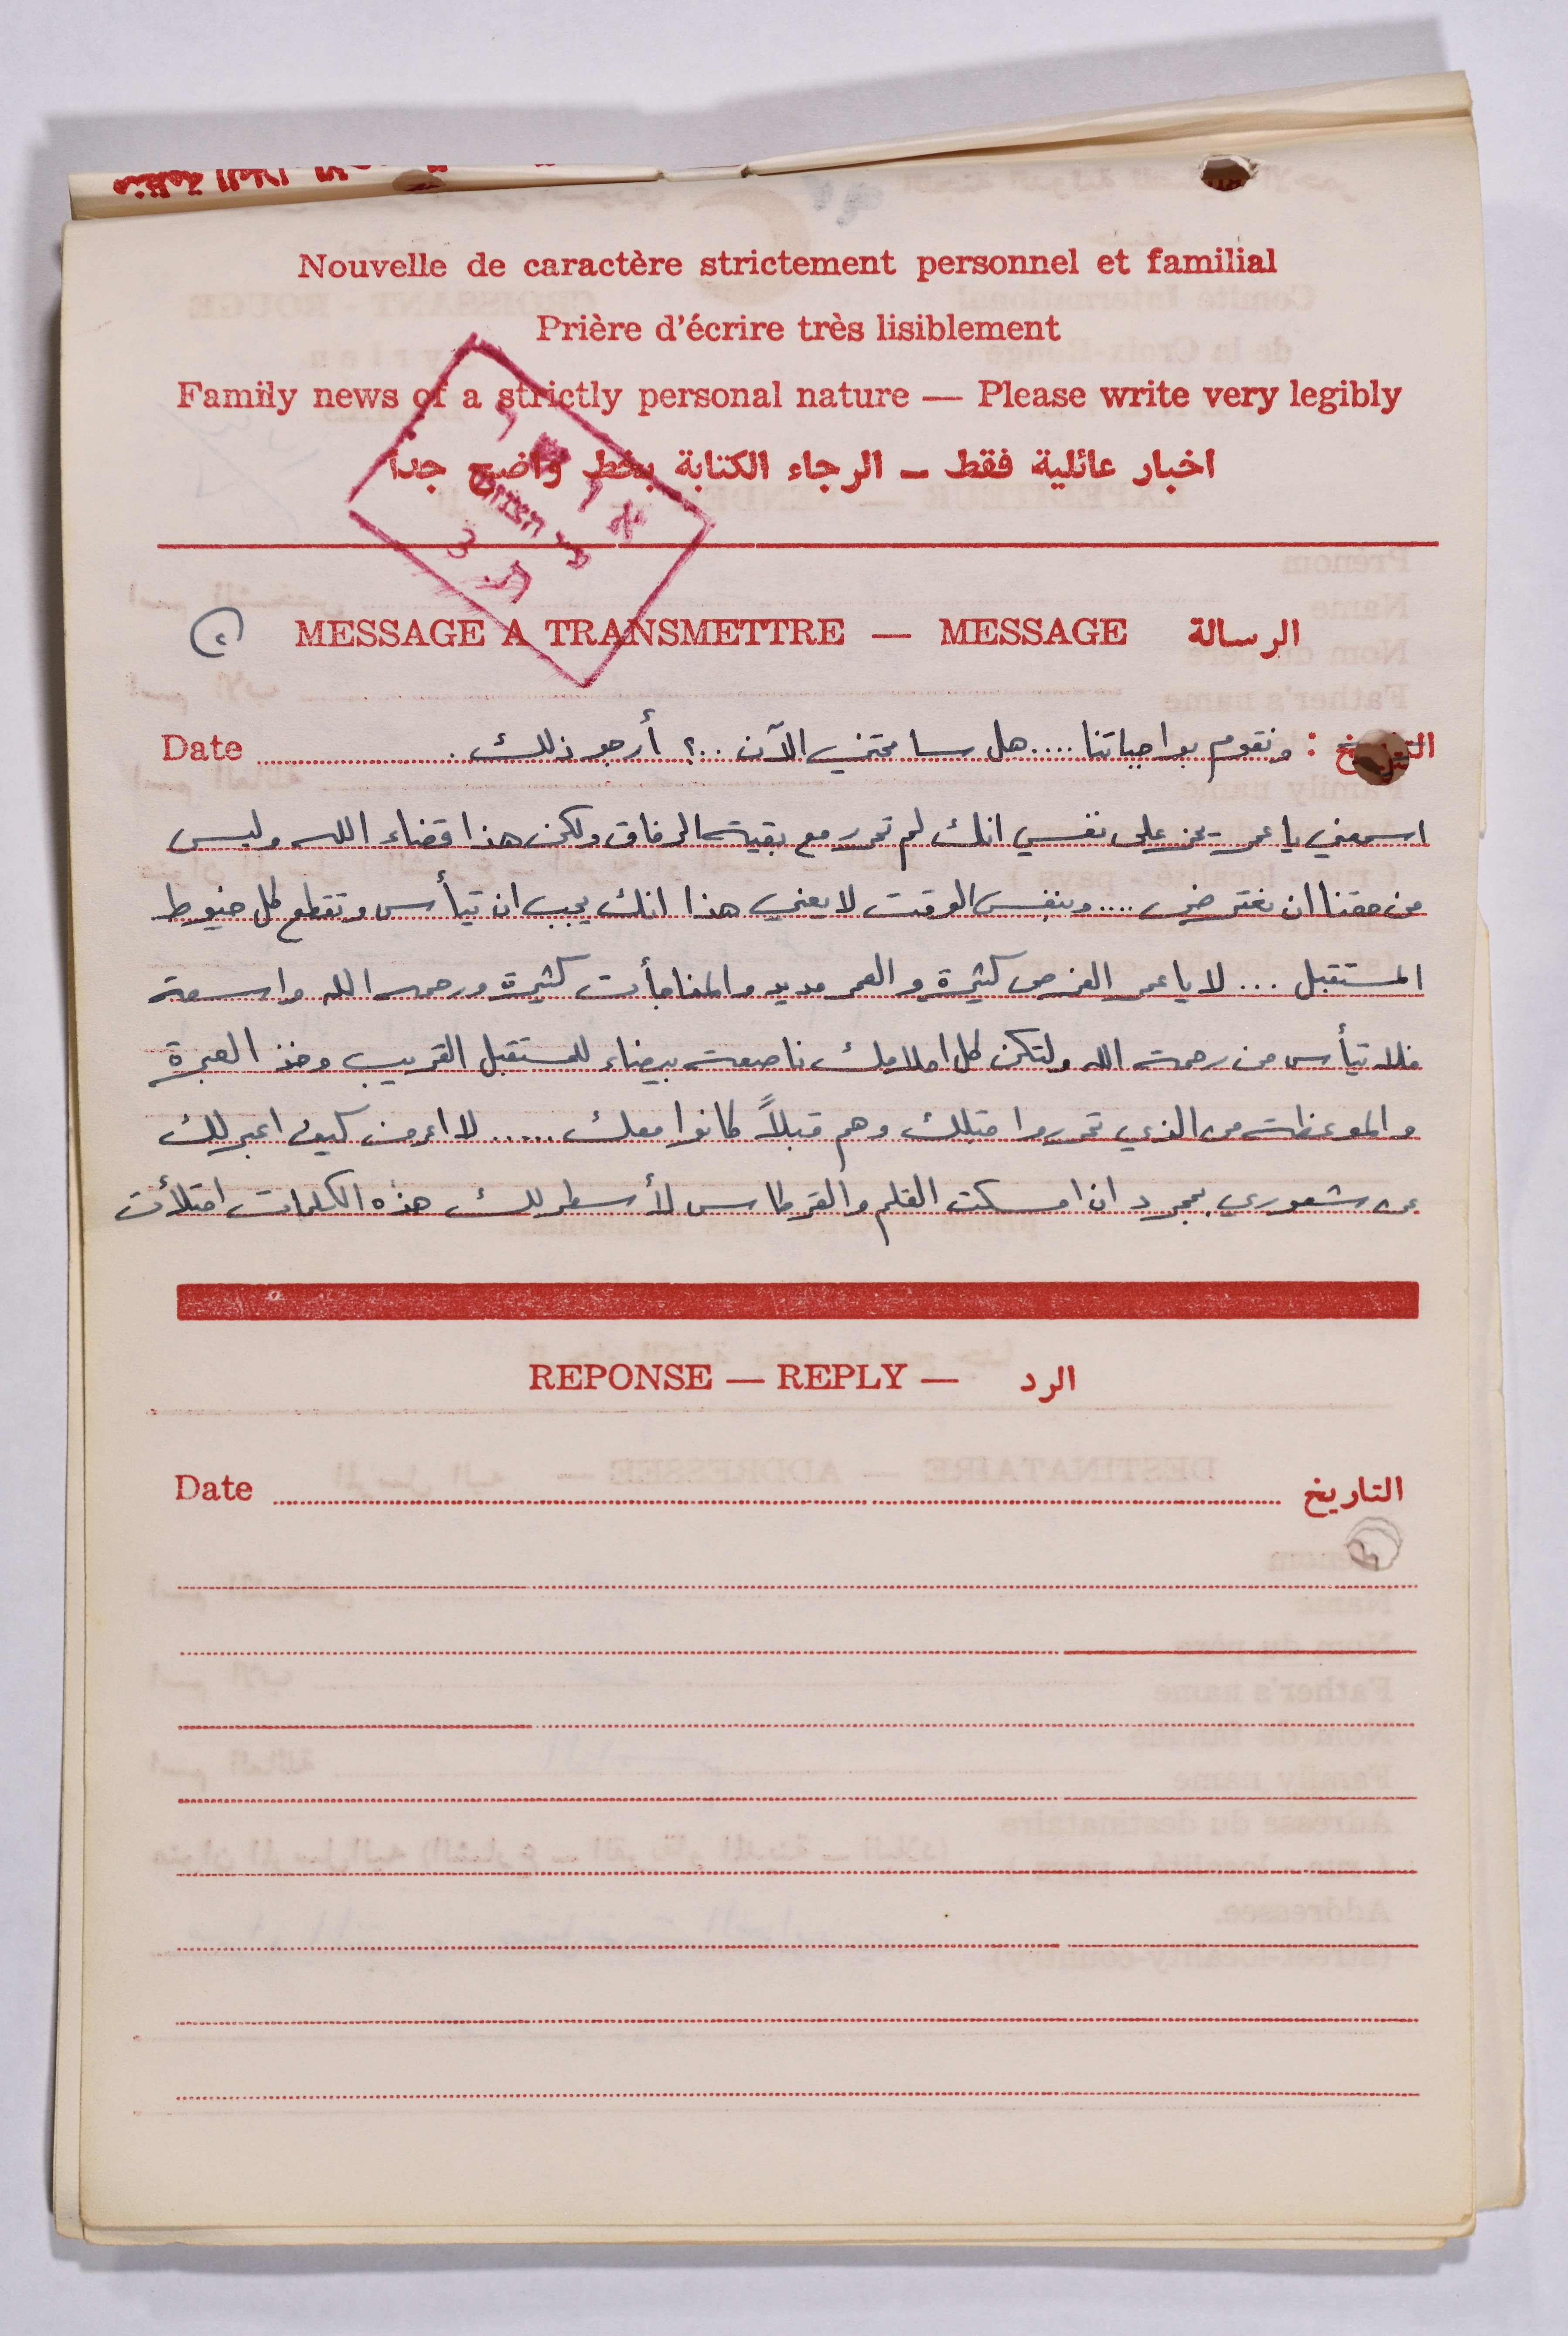 Nouvelle de caractère strictement personnel et familial
Prière d'écrire très lisiblement
Family news of a strictly personal nature — Please write very legibly
اخبار عائلية فقط ــ الرجاء الكتابة بخط واضح جداً
MESSAGE A TRANSMETTRE — MESSAGE الرسالة
Date التاريخ : ونقوم بواجباتنا .... هل سامحتني الآن ..؟ أرجو ذلك .
اسمعني يا عمر يحز على نفسي انك لم تحرر مع بقية الرفاق ولكن هذا قضاء الله وليس
من حقنا ان نعترض .... وبنفس الوقت لا يعني هذا انك يجب ان تيأس وتقطع كل خيوط
المستقبل ... لا يا عمر الفرص كثيرة والعمر مديد والمفاجأت كثيرة ورحمه الله واسعة
فلا تيأس من رحمة الله ولتكن كل احلامك ناصعة بيضاء للمستقبل القريب وخذ العبرة
والموعظة من الذي تحرروا قبلك وهم قبلاً كانوا معك ..... لا اعرف كيف اعبر لك
عن شعوري بمجرد ان امسكت القلم والقرطاس لأسطر لك هذه الكلمات امتلأت
REPONSE — REPLY — الرد
Date التاريخ